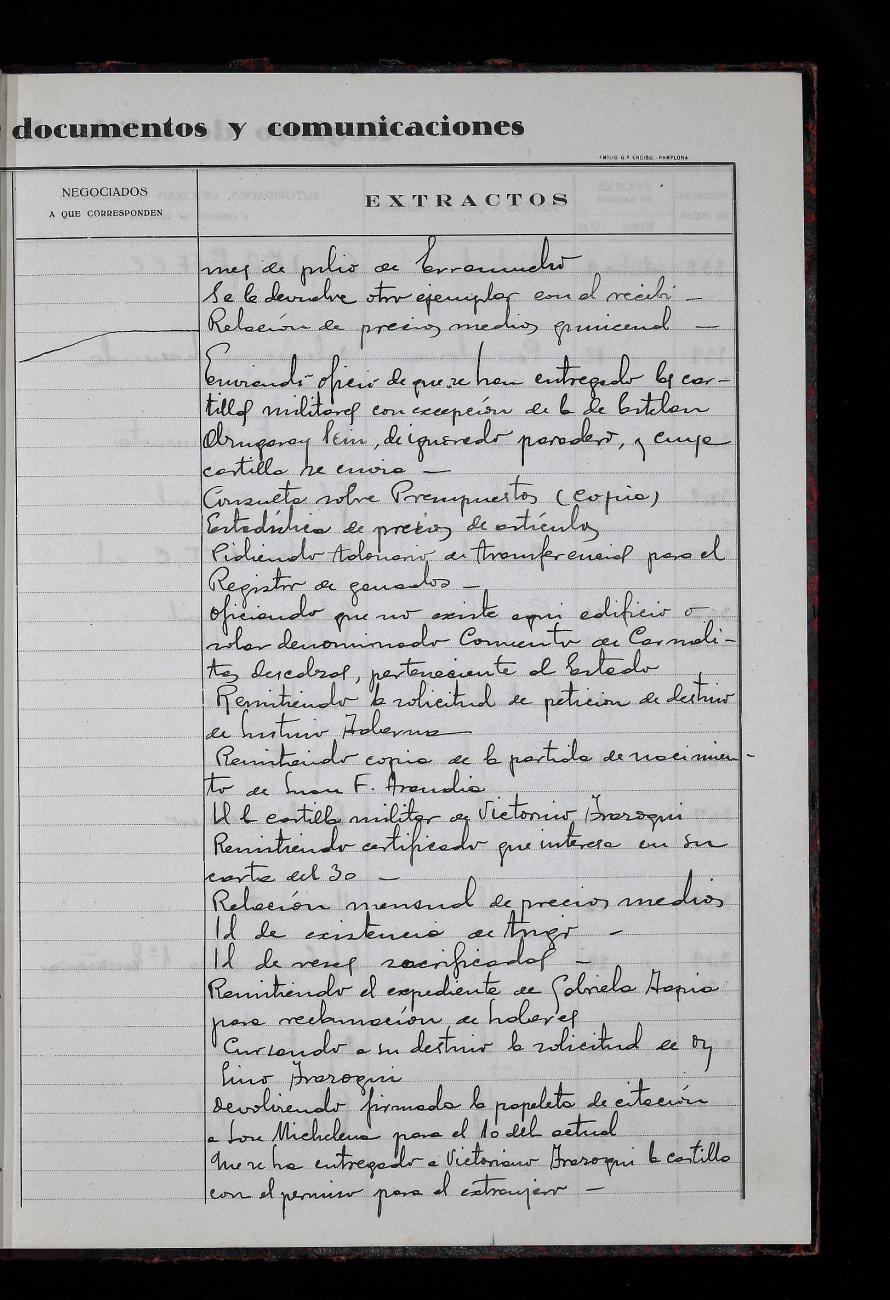 documentos y comunicaciones
EMILIO G.ª ENCISO.-PAMPLONA
NEGOCIADOS
A QUE CORRESPONDEN
EXTRACTOS
mes de julio de
Se le devuelve otro ejemplar con el recibi —
Relación de precios medios quincenal —
Enviando oficio de que se han entregado las car-
tillas militares con excepción de la de Esteban
, de ignorado paradero, y cuya
cartilla se envia —
Consulta sobre Presupuestos (copia)
Estadistica de precios de artículos
Pidiendo talonario de transferencias para el
Registro de ganados —
oficiando que no existe aqui edificio o
solar denominado Convento de Carmeli-
tas descalzas, perteneciente al Estado
Remitiendo la solicitud de peticion de destino
de Justino
Remitiendo copia de la partida de nacimien-
to de Juan F. Arandia
Id la cartilla militar de Victorino Irazoqui
Remitiendo certificado que interesa en su
carta del 30 —
Relación mensual de precios medios
Id de existencia de trigo —
Id de reses sacrificadas —
Remitiendo el expediente de Gabriela Tapia
para reclamación de haberes
Cursando a su destino la solicitud de
Lino Irazoqui
Devolviendo firmada la papeleta de citación
a José Michelena para el 10 del actual
Que se ha entregado a Victoriano Irazoqui la cartilla
con el permiso para el extranjero —